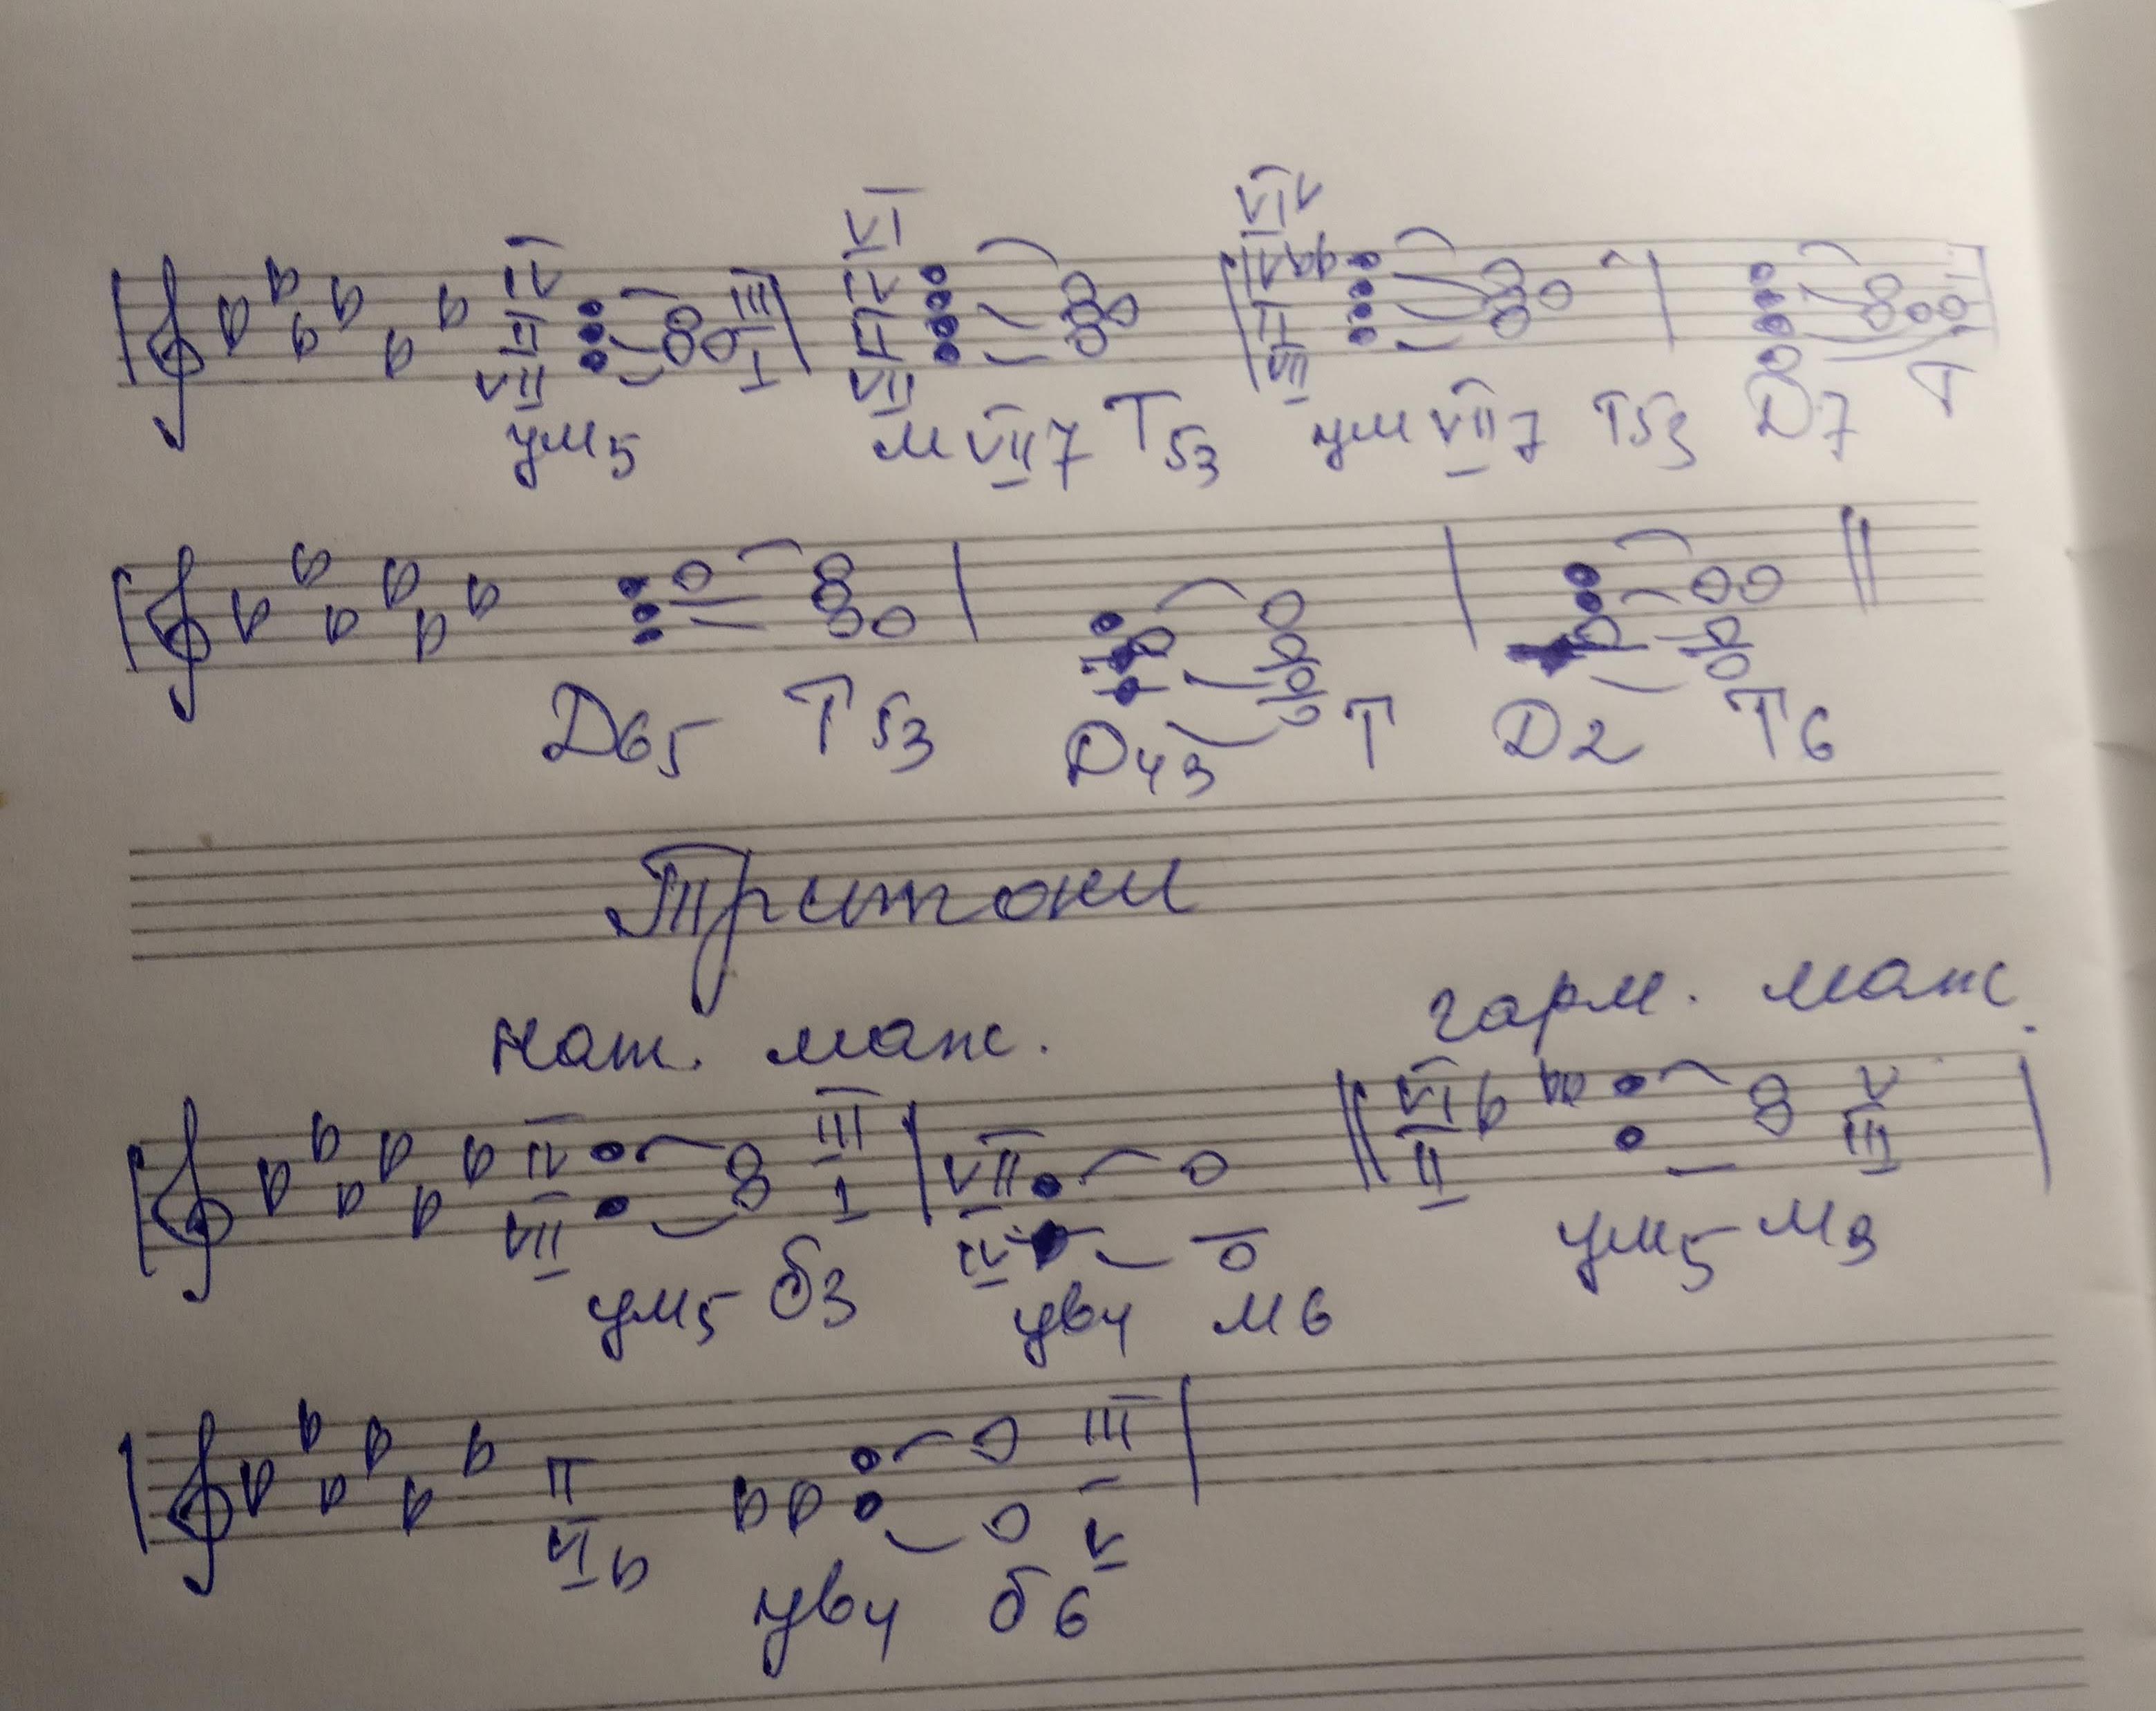 VI VI V
IV III IV IV
II II II
VII I VII VII
ум5 м VII7 T53 ум VII7 T53 D7 T
D65 T53 D43 T D2 T6
Тритоны
нат. маж. гарм. маж.
IV III VII VI b V
VII I IV II III
ум5 б3 ув4 м6 ум5 м3
II III
VI b V
ув4 б6